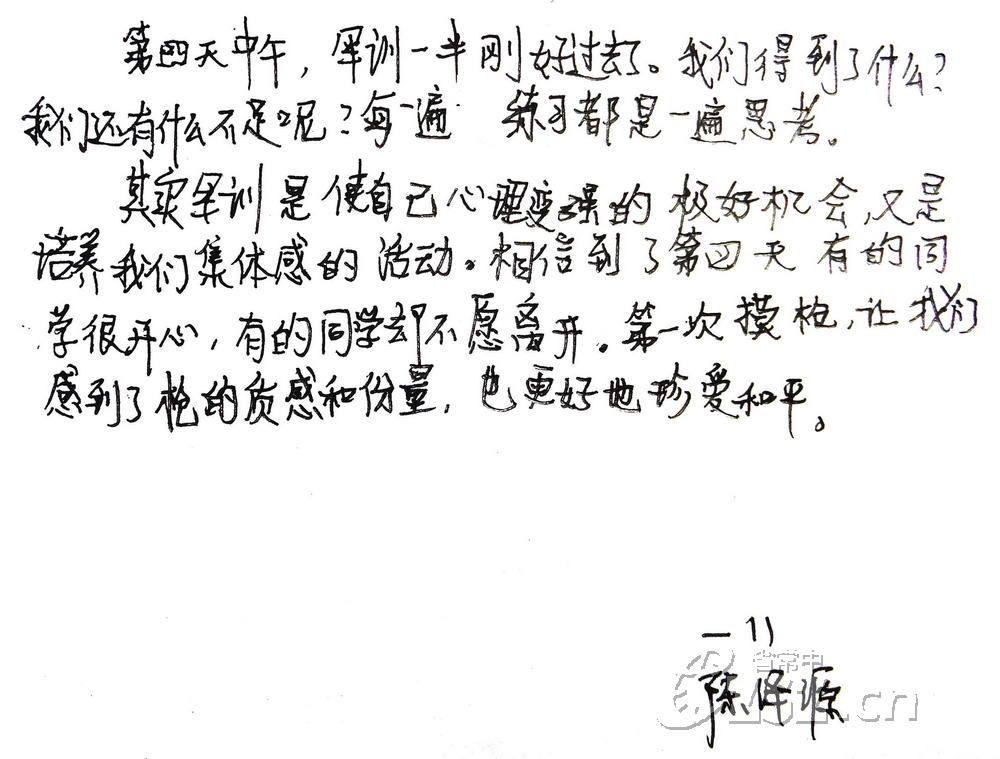 第四天中午，军训一半刚好过去了。我们得到了什么？
我们还有什么不足呢？每一遍 练习都是一遍思考。
其实军训是使自己心理变强的极好机会，又是
培养我们集体感的活动。相信到了第四天有的同
学很开心，有的同学却不愿离开。第一次摸枪，让我们
感到了枪的质感和份量，也更好地珍爱和平。
一 11
省常中
陈泽源
.cn